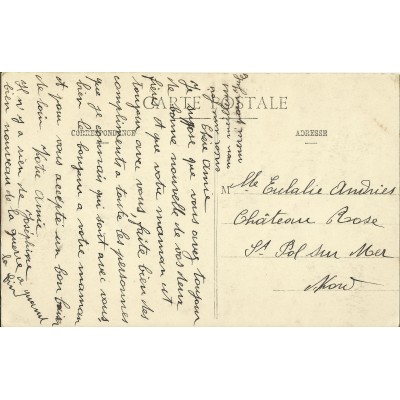 CARTE POSTALE
CORRESPONDANCE
ADRESSE
Chère amie
Je suppose que vous avez toujour
de bonne nouvelle de vos deux
et que votre maman est
toujour avec vous, faite bien des
compliments a toute les personnes
que je connais qui sont avec vous
bien le bonjour a votre maman
et pour vous accepter un bon baiser
de loin Votre Amie
Joséphine
Il n'y a rien de
bien nouveau de la guerre a quand
la fin
Mlle Eulalie Andries
Château Rose
St Pol sur Mer
Nord